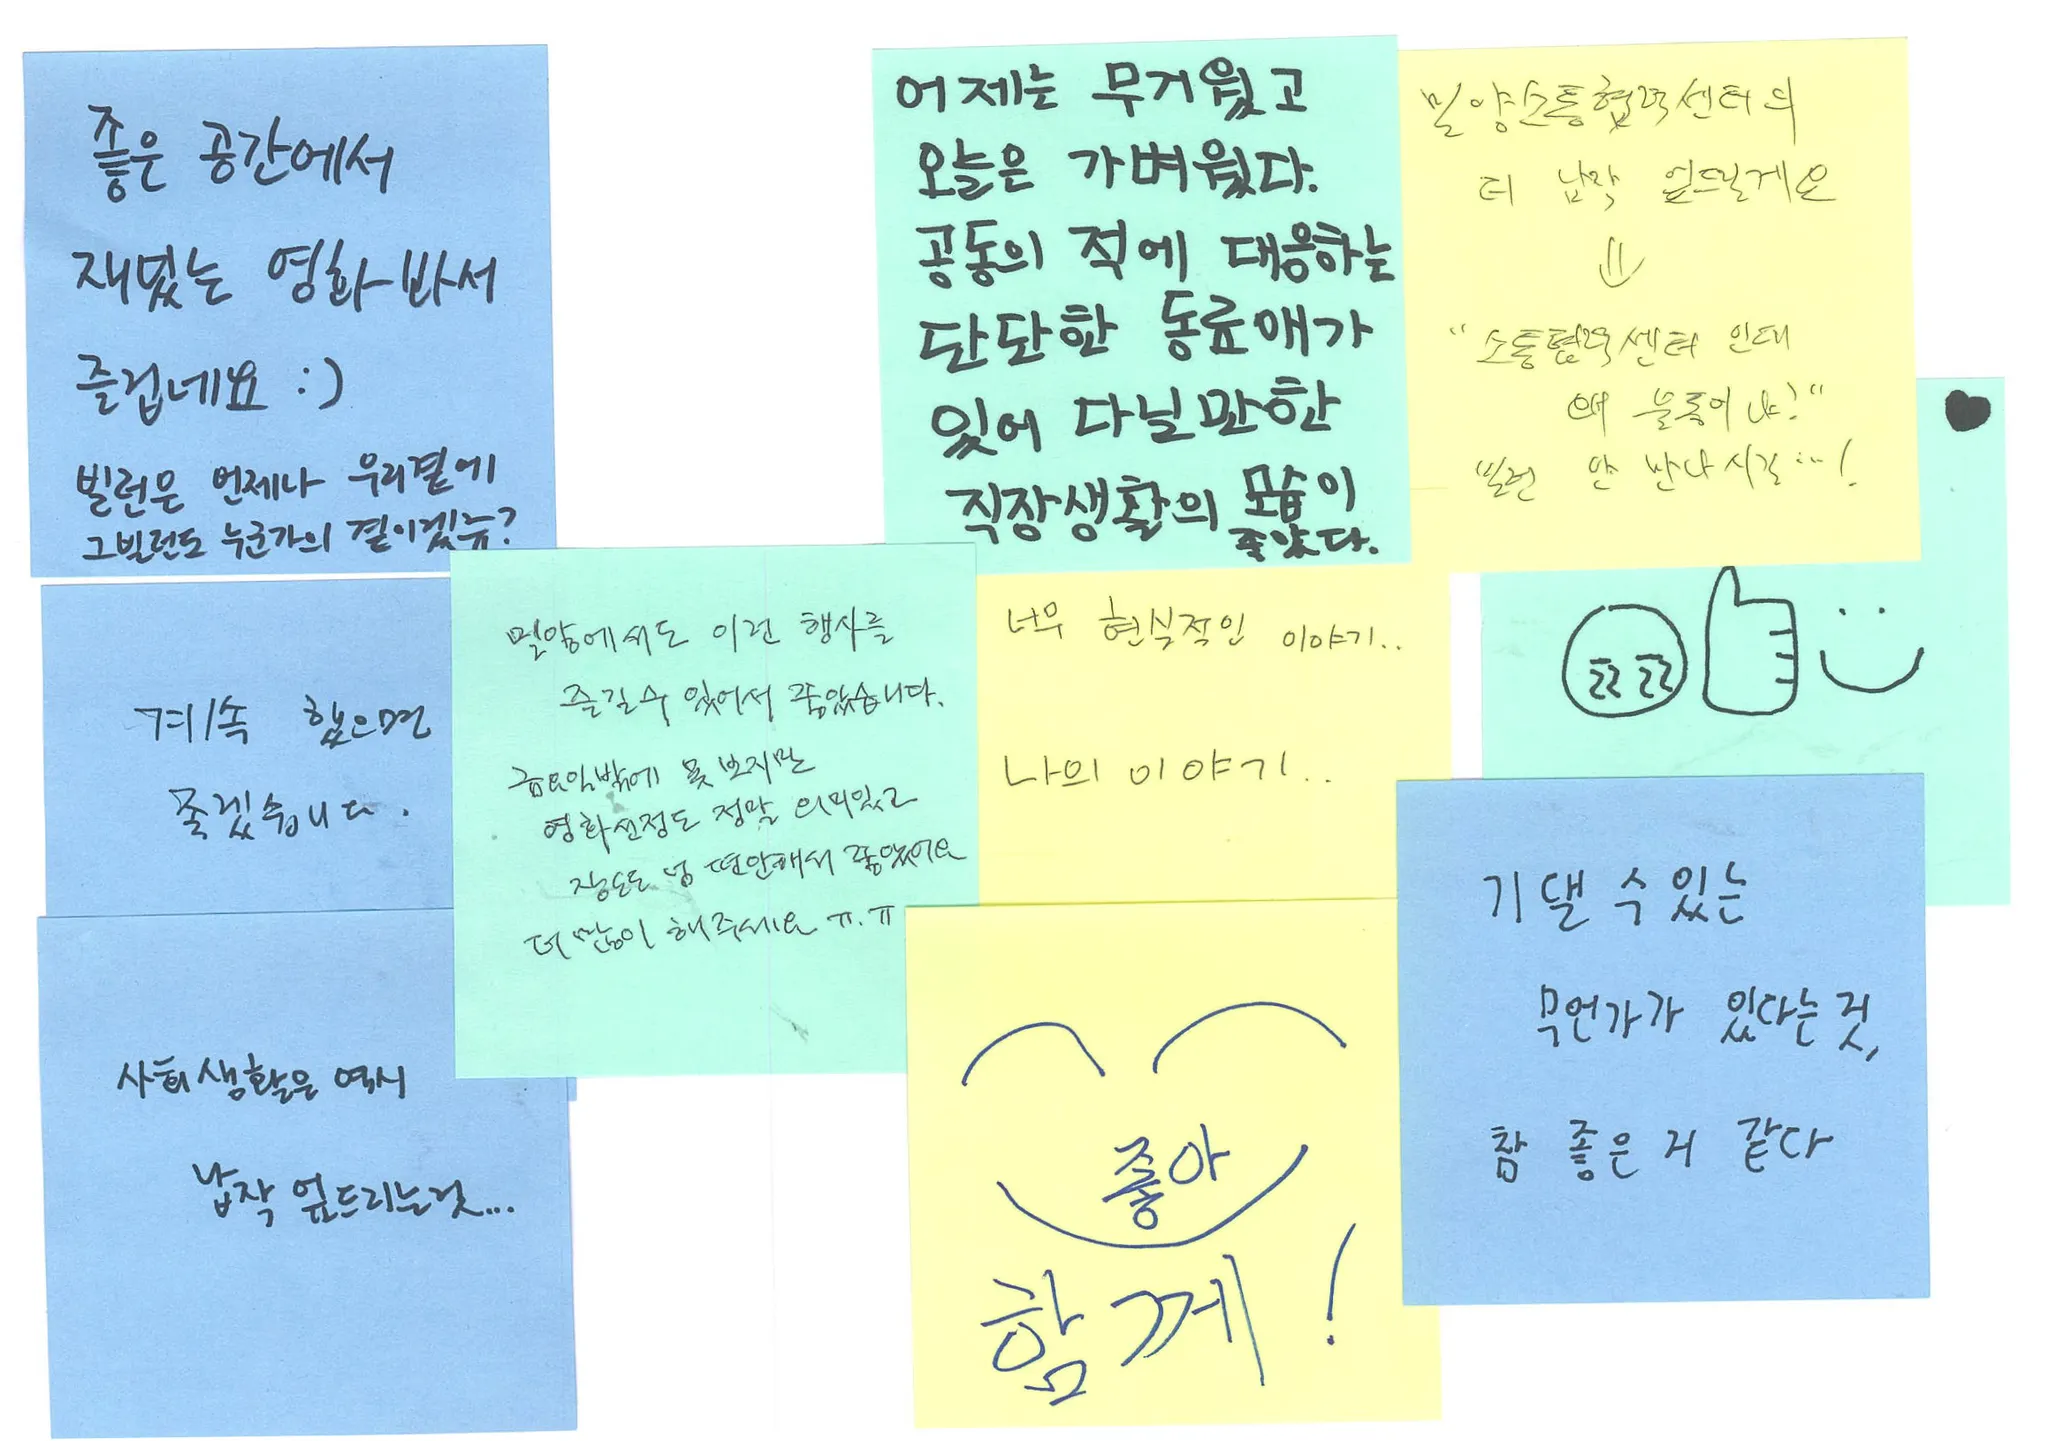 좋은 공간에서
재밌는 영화봐서
즐겁네요 :)
빌런은 언제나 우리곁에
그빌런도 누군가의 곁이겠쥬?
어제는 무거웠고
오늘은 가벼웠다.
공동의 적에 대응하는
단단한 동료애가
있어 다닐만한
직장생활의 모습이
좋았다.
밀양소통협력센터의
더 납작 엎드릴게요
⇓
"소통협력센터 인데
왜 불통이냐?"
빌런 안 만나시길…!
계속 했으면
좋겠습니다.
밀양에서도 이런 행사를
즐길수 있어서 좋았습니다.
금요일밖에 못 보지만
영화선정도 정말 의미있고
장소도 넘 편안해서 좋았어요
더 많이 해주세요 ㅠ.ㅠ
너무 현실적인 이야기..
나의 이야기..
ㄹㄹ
사회생활은 역시
납작 엎드리는것...
좋아
함께!
기댈 수 있는
무언가가 있다는 것,
참 좋은 거 같다